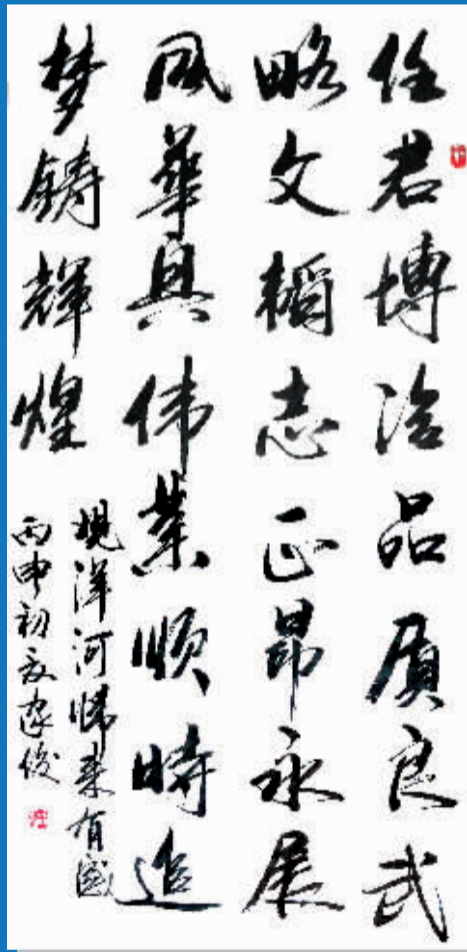 任君博洽品质良武
略文韬志正昂永展
风華兴伟業顺时追
梦鋳輝煌
观洋河归来有感
丙申初夏家俊